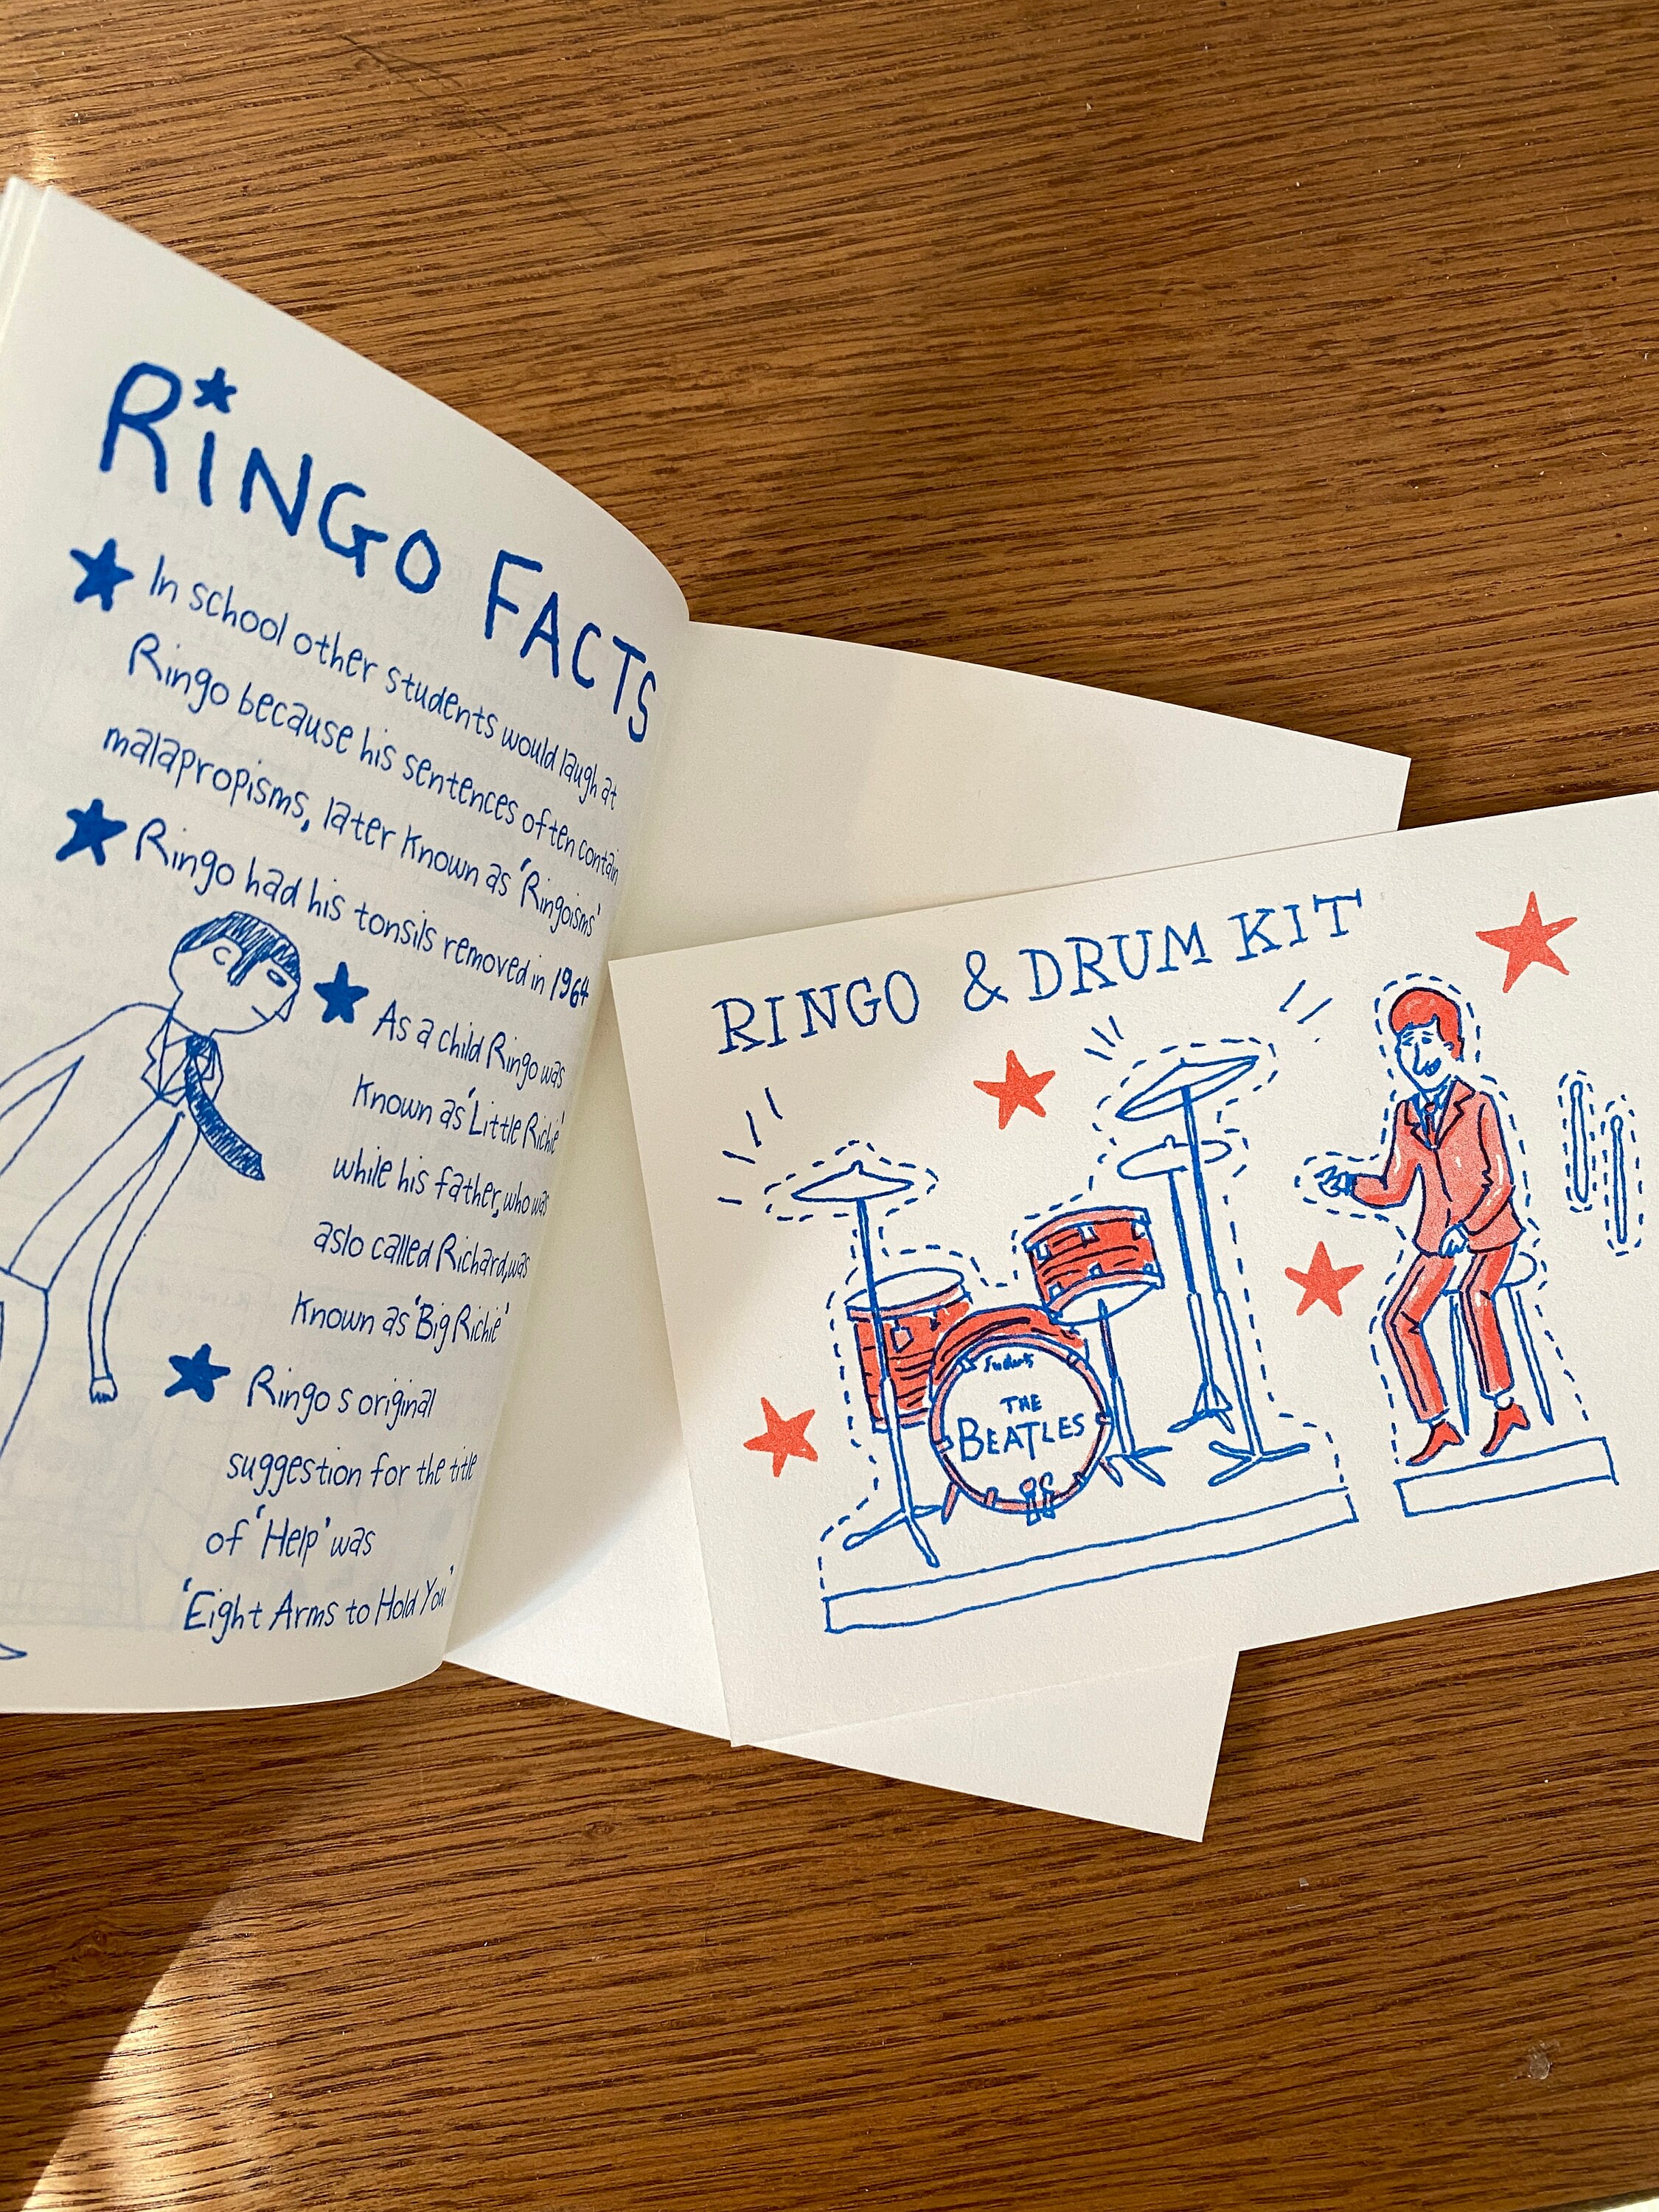 RiNGO FACTS
In school other students would laugh at
Ringo because his sentences often contain
malapropisms, later known as 'Ringoisms'
Ringo had his tonsils removed in 1964
As a child Ringo was
known as 'Little Richie'
while his father, who was
aslo called Richard, was
known as 'Big Richie'
Ringo s original
suggestion for the title
of 'Help' was
'Eight Arms to Hold You'
RINGO & DRUM KIT
THE
BEATLES